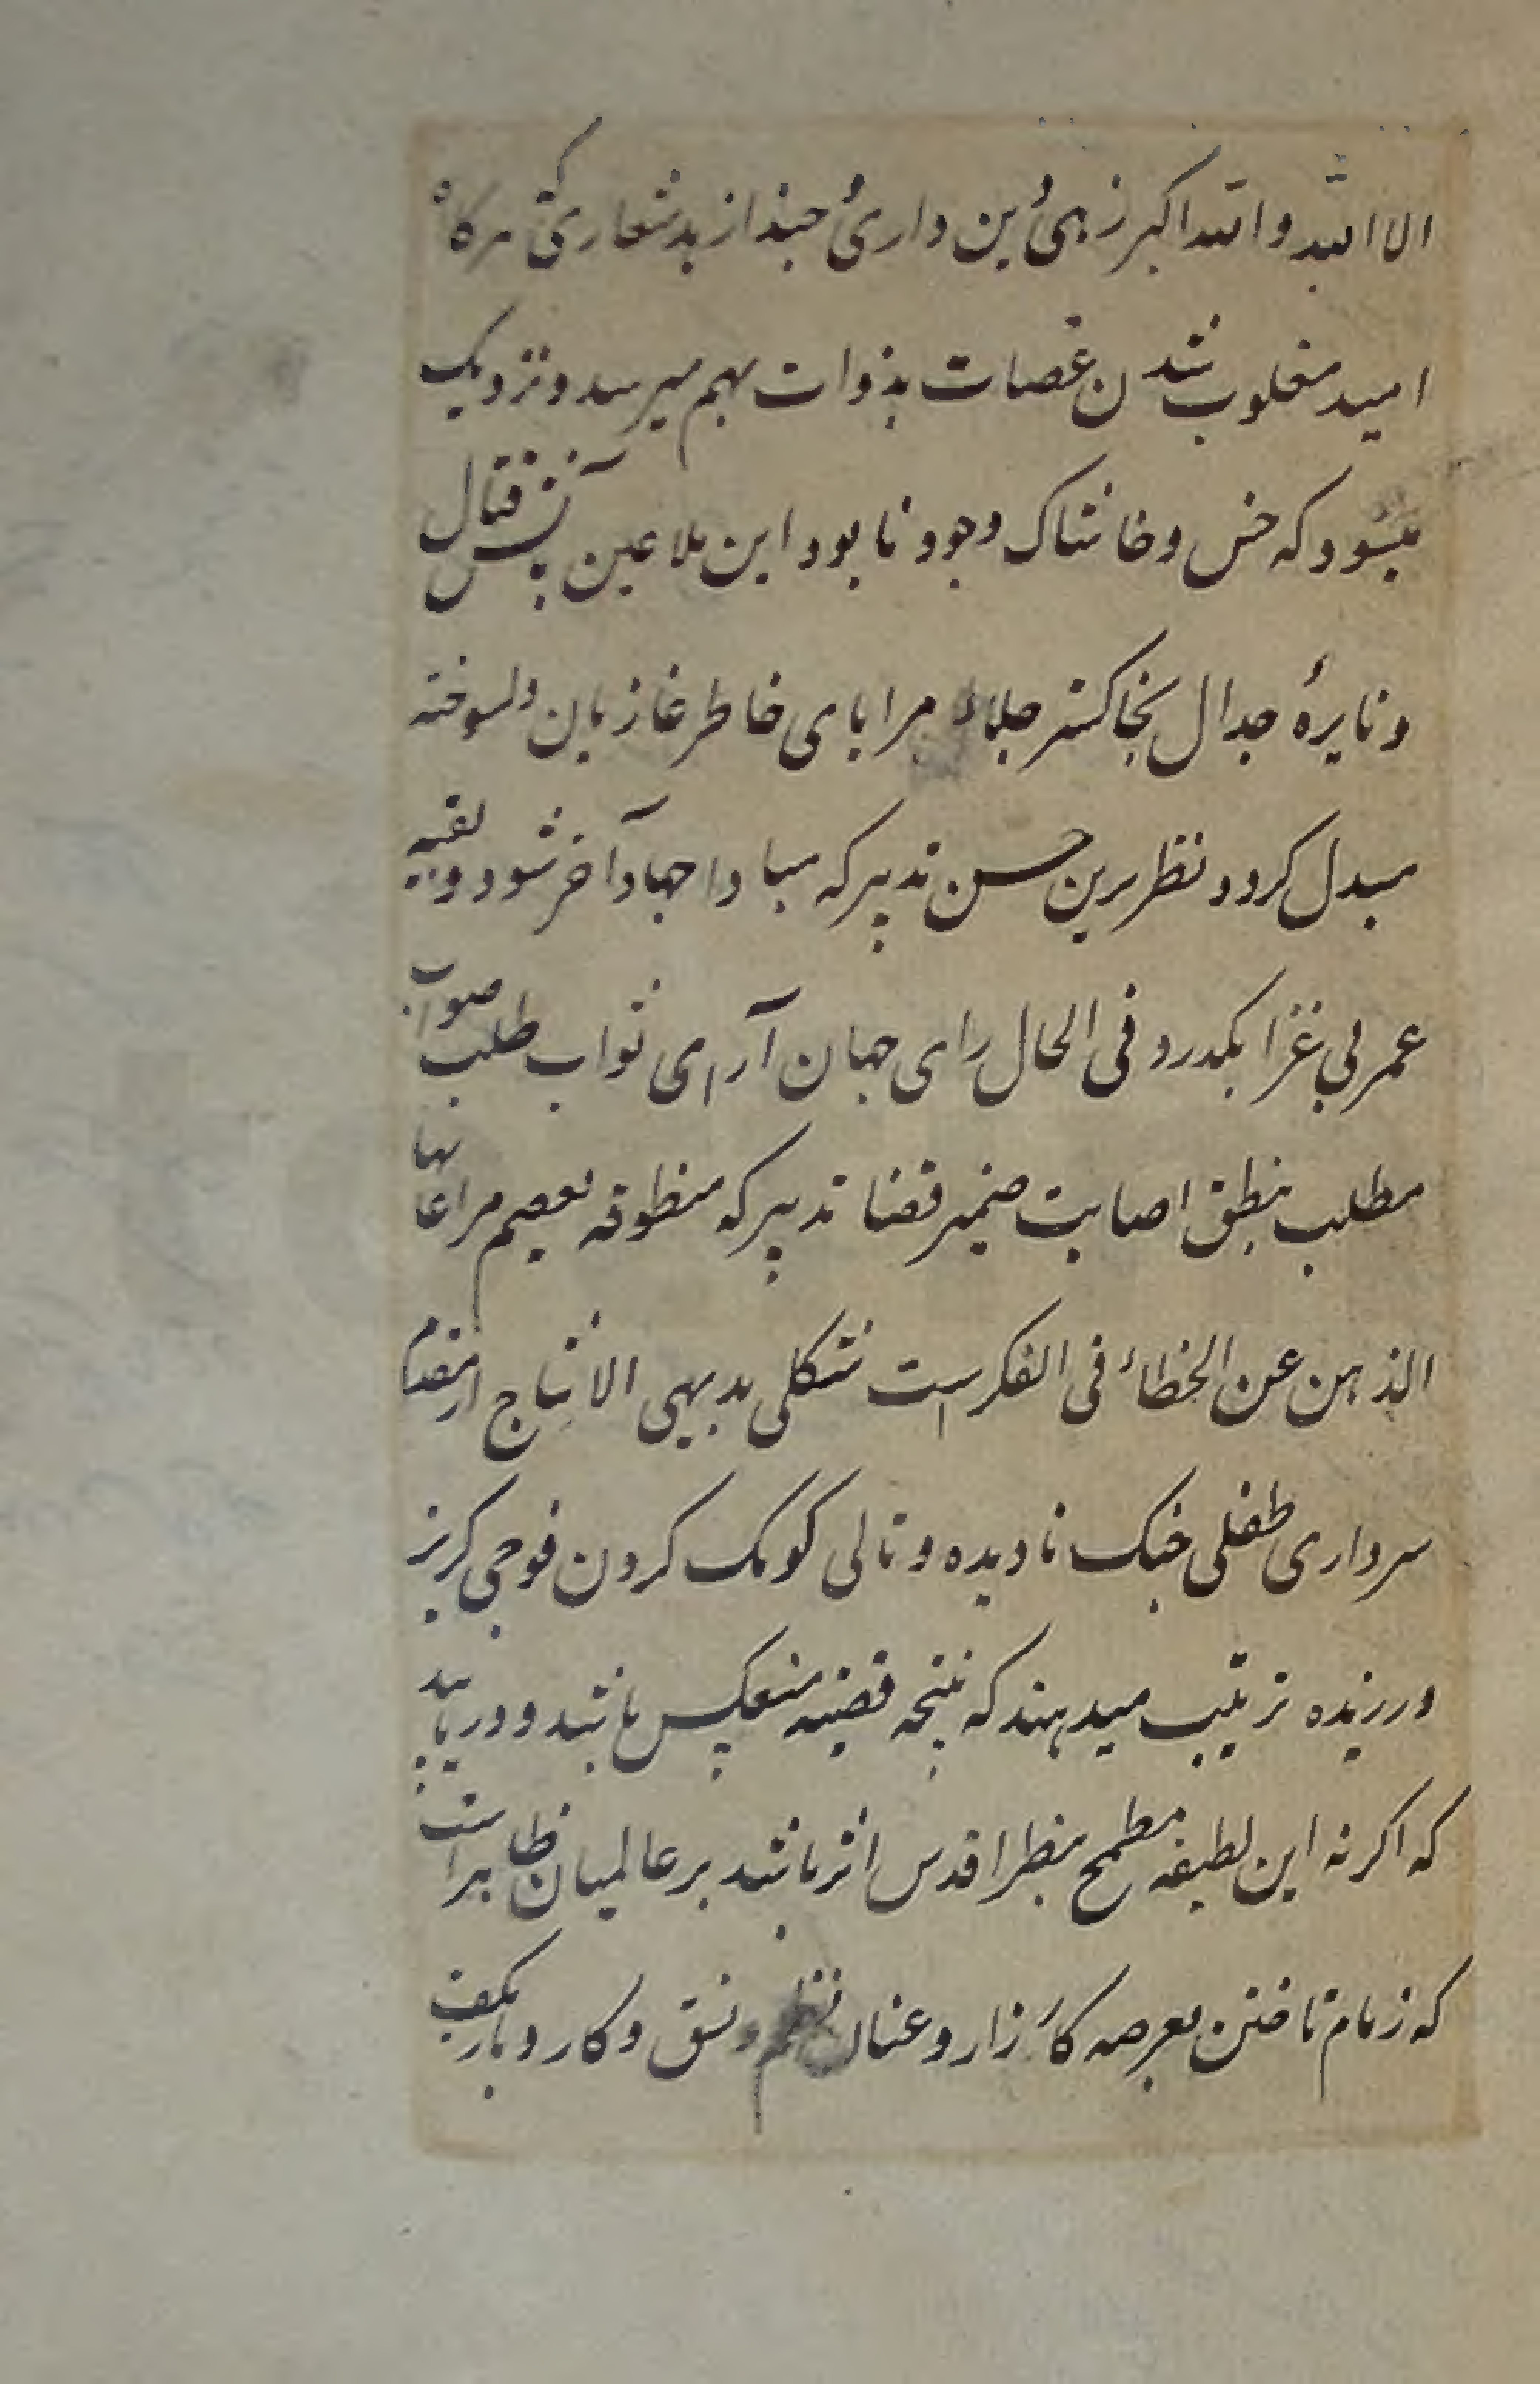 الا الله والله اکبر زهی دین داری حبذا زبدشعاری که هرگاه
امید مغلوب شدن غصات بذوات بهم میرسد و نزدیک
میشود که خس و خاشاک وجود نابود این ملاعین بآتش قتال
و نایرهٔ جدال بخاکستر جلاء مرایای خاطر غازیان دلسوخته
مبدل کردد نظر برین حسن تدبیر که مبادا جهاد آخر شود و بقیه
عمر بی غزا بکدرد فی الحال رای جهان آرای ثواب طلب صواب
مطلب بنطق اصابت ضمیر قضا تدبیر که منطوقه تعصم مراعاتها
الذهن عن الخطاء فی الفکر است شکلی بدیهی الانتاج از مقدم
سرداری طفلی جنک نادیده و تالی کومک کردن فوجی کریز
ورزیده ترتیب میدهند که نتیجه قضیه منعکس باشد و دریابند
که اکر نه این لطیفه مطمح بنظر اقدس اثر باشد بر عالمیان ظاهر است
که زمام تاختن بعرصه کارزار و عنان نظم و نسق و کار و بار بکف